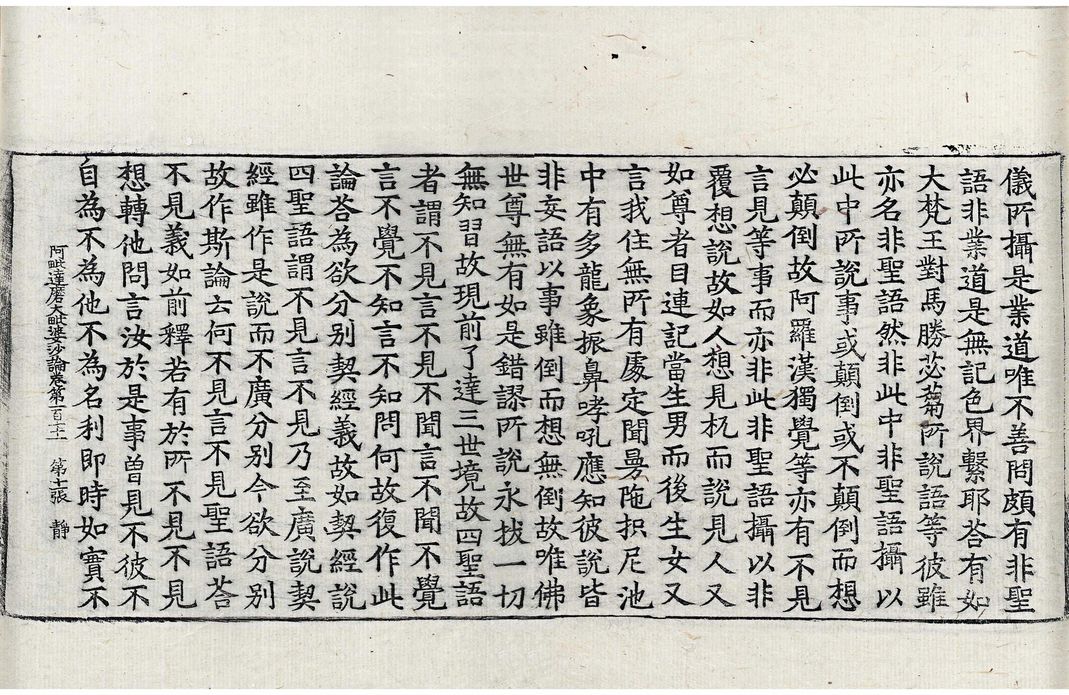 儀所攝是業道唯不善問頗有非聖
語非業道是無記色界繫耶荅有如
大梵王對馬勝苾蒭所說語等彼雖
亦名非聖語然非此中非聖語攝以
此中所說事或顛倒或不顛倒而想
必顛倒故阿羅漢獨覺等亦有不見
言見等事而亦非此非聖語攝以非
覆想說故如人想見杌而說見人又
如尊者目連記當生男而後生女又
言我住無所有處定聞曼陁抧尼池
中有多龍象振鼻哮吼應知彼說皆
非妄語以事雖倒而想無倒故唯佛
世尊無有如是錯謬所說永拔一切
無知習故現前了達三世境故四聖語
者謂不見言不見不聞言不聞不覺
言不覺不知言不知問何故復作此
論荅為欲分別契經義故如契經說
四聖語謂不見言不見乃至廣說契
經雖作是說而不廣分別今欲分別
故作斯論云何不見言不見聖語荅
不見義如前釋若有於所不見不見
想轉他問言汝於是事曾見不彼不
自為不為他不為名利即時如實不
阿毗達磨大毗婆沙論卷第百七十一 第十張 靜